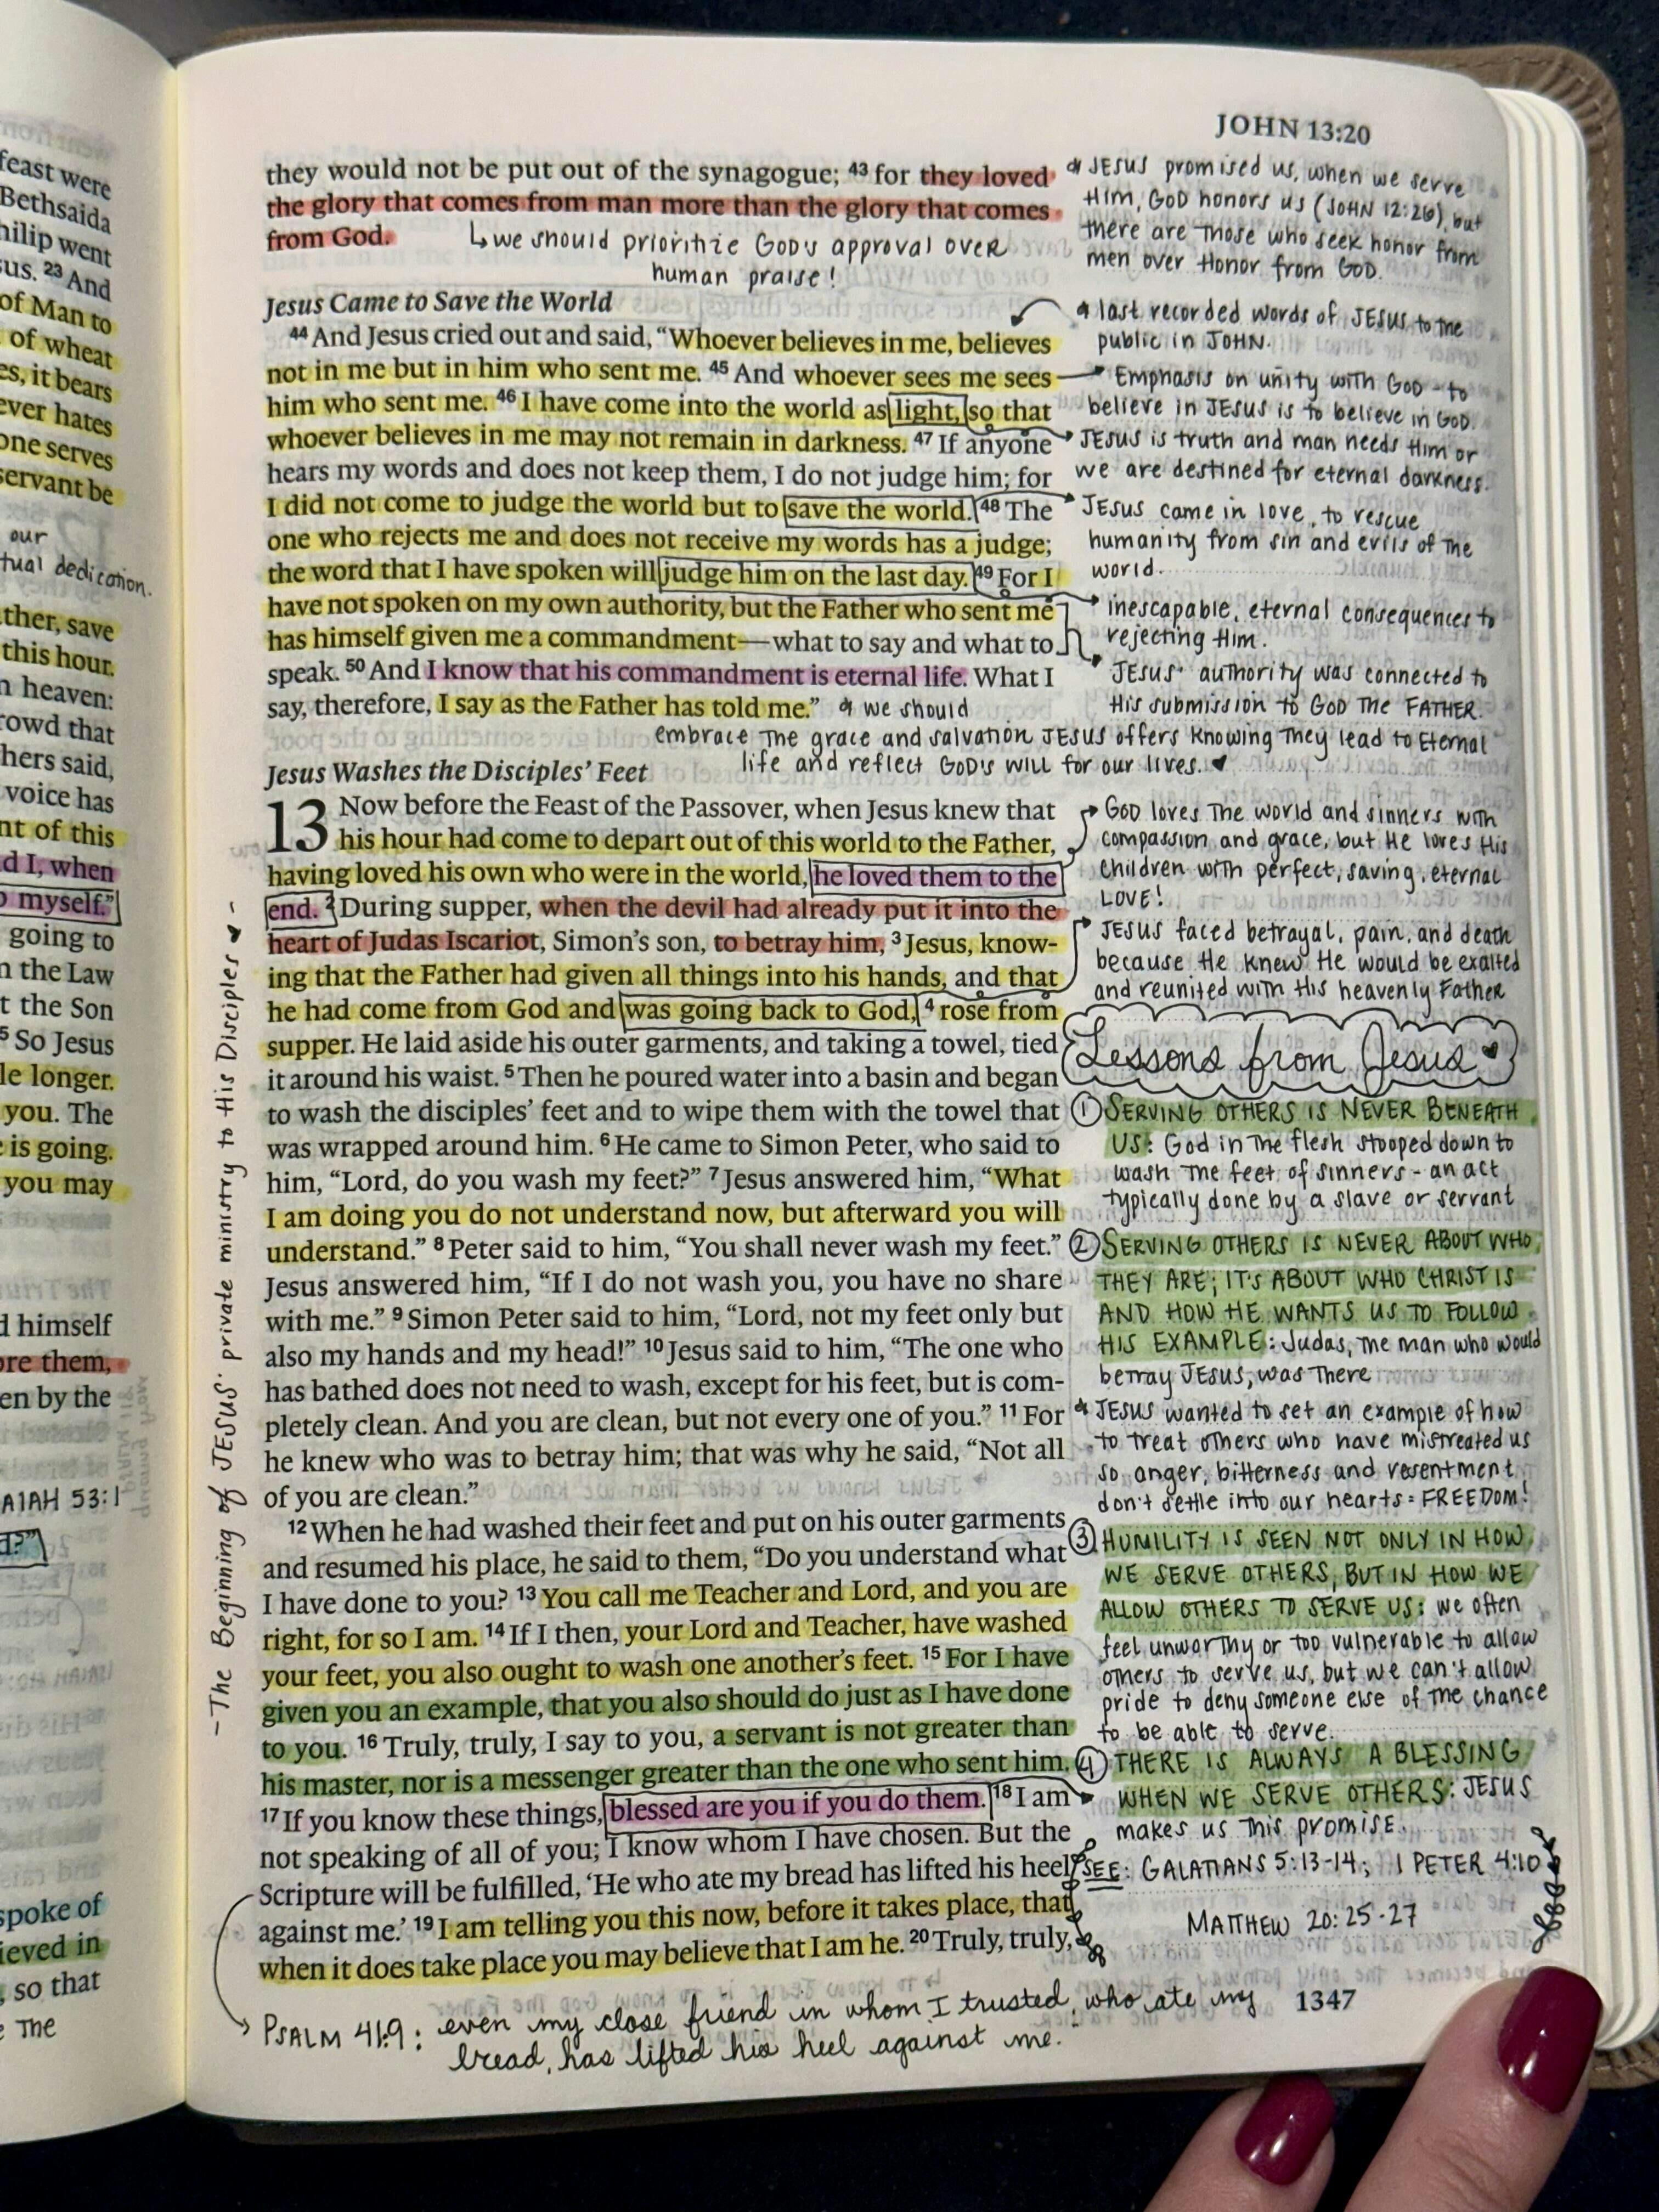 feast were
Bethsaida
hilip went
sus. 23 And
of Man to
of wheat
es, it bears
ever hates
one serves
servant be
our
tual dedication.
ther, save
this hour.
n heaven:
rowd that
hers said,
voice has
nt of this
d I, when
o myself."
going to
n the Law
t the Son
5 So Jesus
le longer.
you. The
is going.
you may
d himself
ore them,
en by the
AIAH 53:1
d?"
spoke of
ieved in
, so that
The
JOHN 13:20
they would not be put out of the synagogue; 43 for they loved
the glory that comes from man more than the glory that comes
from God.
↳ we should prioritize GOD's approval over
human praise!
Jesus Came to Save the World
44 And Jesus cried out and said, “Whoever believes in me, believes
not in me but in him who sent me. 45 And whoever sees me sees
him who sent me. 46 I have come into the world as light, so that
whoever believes in me may not remain in darkness. 47 If anyone
hears my words and does not keep them, I do not judge him; for
I did not come to judge the world but to save the world. 48 The
one who rejects me and does not receive my words has a judge;
the word that I have spoken will judge him on the last day. 49 For I
have not spoken on my own authority, but the Father who sent me
has himself given me a commandment—what to say and what to
speak. 50 And I know that his commandment is eternal life. What I
say, therefore, I say as the Father has told me.”
we should
embrace The grace and salvation JESUS offers knowing They lead to Eternal
life and reflect GOD'S WILL for our lives. ♥
Jesus Washes the Disciples’ Feet
13 Now before the Feast of the Passover, when Jesus knew that
his hour had come to depart out of this world to the Father,
having loved his own who were in the world, he loved them to the
end. 2 During supper, when the devil had already put it into the
heart of Judas Iscariot, Simon’s son, to betray him, 3 Jesus, know-
ing that the Father had given all things into his hands, and that
he had come from God and was going back to God, 4 rose from
supper. He laid aside his outer garments, and taking a towel, tied
it around his waist. 5 Then he poured water into a basin and began
to wash the disciples’ feet and to wipe them with the towel that
was wrapped around him. 6 He came to Simon Peter, who said to
him, “Lord, do you wash my feet?” 7 Jesus answered him, “What
I am doing you do not understand now, but afterward you will
understand.” 8 Peter said to him, “You shall never wash my feet.”
Jesus answered him, “If I do not wash you, you have no share
with me.” 9 Simon Peter said to him, “Lord, not my feet only but
also my hands and my head!” 10 Jesus said to him, “The one who
has bathed does not need to wash, except for his feet, but is com-
pletely clean. And you are clean, but not every one of you.” 11 For
he knew who was to betray him; that was why he said, “Not all
of you are clean.”
12 When he had washed their feet and put on his outer garments
and resumed his place, he said to them, “Do you understand what
I have done to you? 13 You call me Teacher and Lord, and you are
right, for so I am. 14 If I then, your Lord and Teacher, have washed
your feet, you also ought to wash one another’s feet. 15 For I have
given you an example, that you also should do just as I have done
to you. 16 Truly, truly, I say to you, a servant is not greater than
his master, nor is a messenger greater than the one who sent him.
17 If you know these things, blessed are you if you do them. 18 I am
not speaking of all of you; I know whom I have chosen. But the
Scripture will be fulfilled, ‘He who ate my bread has lifted his heel
against me.’ 19 I am telling you this now, before it takes place, that
when it does take place you may believe that I am he. 20 Truly, truly,
- The Beginning of JESUS' private ministry to His Disciples ♥ -
JESUS promised us, when we serve
Him, GOD honors us (JOHN 12:26), but
there are Those who seek honor from
men over Honor from GOD.
last recorded words of JESUS to the
public in JOHN.
Emphasis on unity with GOD - to
believe in JESUS is to believe in GOD.
JESUS is truth and man needs Him or
we are destined for eternal darkness.
JESUS came in love, to rescue
humanity from sin and evils of the
world.
inescapable, eternal consequences to
rejecting Him.
JESUS' authority was connected to
His submission to GOD The FATHER.
GOD loves The world and sinners with
compassion and grace, but He loves His
children with perfect, saving, eternal
LOVE!
JESUS faced betrayal, pain, and death
because He knew He would be exalted
and reunited with His heavenly Father
Lessons from Jesus ♥
① SERVING OTHERS IS NEVER BENEATH
US: God in The flesh stooped down to
wash The feet of sinners - an act
typically done by a slave or servant
② SERVING OTHERS IS NEVER ABOUT WHO
THEY ARE; IT'S ABOUT WHO CHRIST IS
AND HOW HE WANTS US TO FOLLOW
HIS EXAMPLE: Judas, The man who would
betray JESUS, was There
JESUS wanted to set an example of how
to treat others who have mistreated us
so anger, bitterness and resentment
don't settle into our hearts = FREEDOM!
③ HUMILITY IS SEEN NOT ONLY IN HOW
WE SERVE OTHERS, BUT IN HOW WE
ALLOW OTHERS TO SERVE US: we often
feel unworthy or too vulnerable to allow
others to serve us, but we can't allow
pride to deny someone else of The chance
to be able to serve.
④ THERE IS ALWAYS A BLESSING
WHEN WE SERVE OTHERS: JESUS
makes us This promise.
SEE: GALATIANS 5:13-14; 1 PETER 4:10
MATTHEW 20:25-27
PSALM 41:9: even my close friend in whom I trusted, who ate my
bread, has lifted his heel against me.
1347